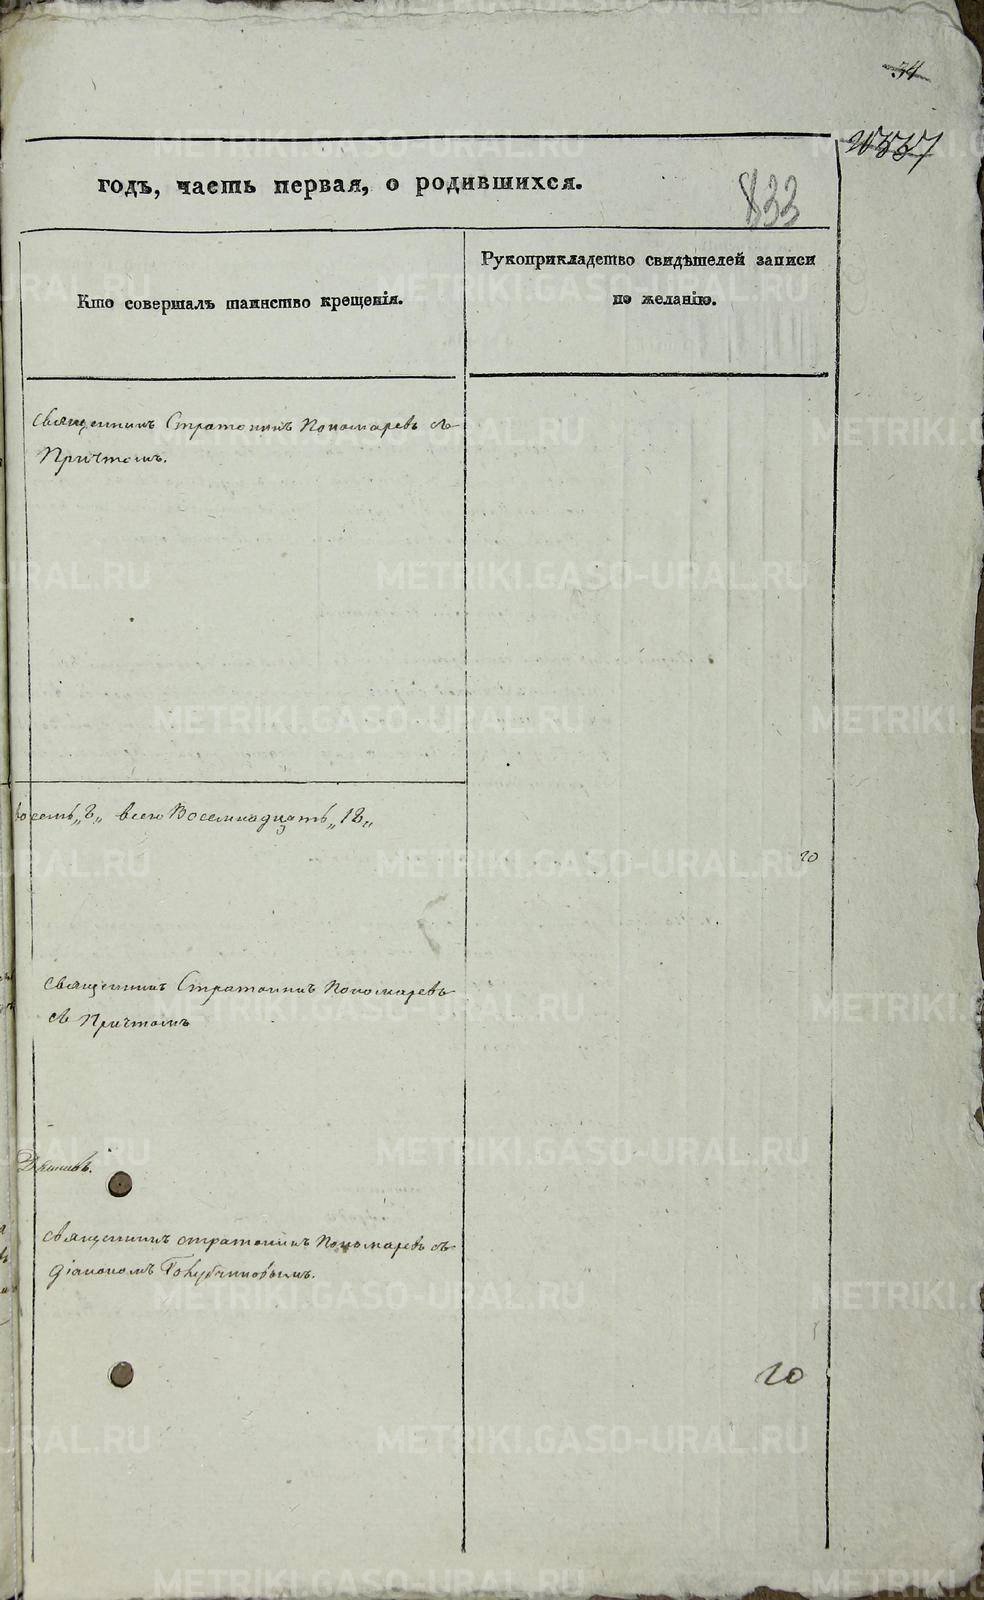 34
833
годъ, часть первая, о родившихся.
Кто совершалъ таинство крещенія.
Рукоприкладство свидѣтелей записи
по желанію.
Священникъ Стратоникъ Пономаревъ съ
Причтомъ.
восемь „8„ всего Восемнадцать „18„
20
Священникъ Стратоникъ Пономаревъ
съ Причтомъ
Священникъ стратоникъ Пономаревъ съ
діакономъ Голубчиковымъ.
20
METRIKI.GASO-URAL.RU